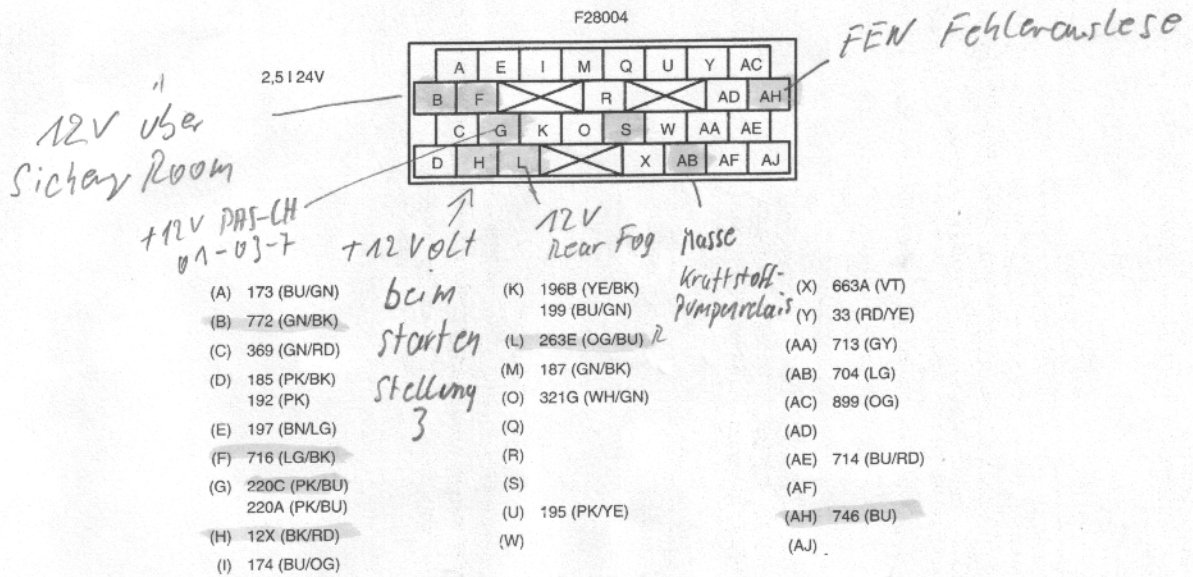 F28004
FEN Fehlerauslese
2,5 I 24V
A E I M Q U Y AC
B F R AD AH
C G K O S W AA AE
D H L X AB AF AJ
12V über
Room
+12V PAS-CH
01-03-7
+12 Volt
beim
starten
Stellung
3
12V
Rear Fog
Masse
Kraftstoff-
Pumpenrelais
(A) 173 (BU/GN)
(B) 772 (GN/BK)
(C) 369 (GN/RD)
(D) 185 (PK/BK)
192 (PK)
(E) 197 (BN/LG)
(F) 716 (LG/BK)
(G) 220C (PK/BU)
220A (PK/BU)
(H) 12X (BK/RD)
(I) 174 (BU/OG)
(K) 196B (YE/BK)
199 (BU/GN)
(L) 263E (OG/BU)
(M) 187 (GN/BK)
(O) 321G (WH/GN)
(Q)
(R)
(S)
(U) 195 (PK/YE)
(W)
(X) 663A (VT)
(Y) 33 (RD/YE)
(AA) 713 (GY)
(AB) 704 (LG)
(AC) 899 (OG)
(AD)
(AE) 714 (BU/RD)
(AF)
(AH) 746 (BU)
(AJ)